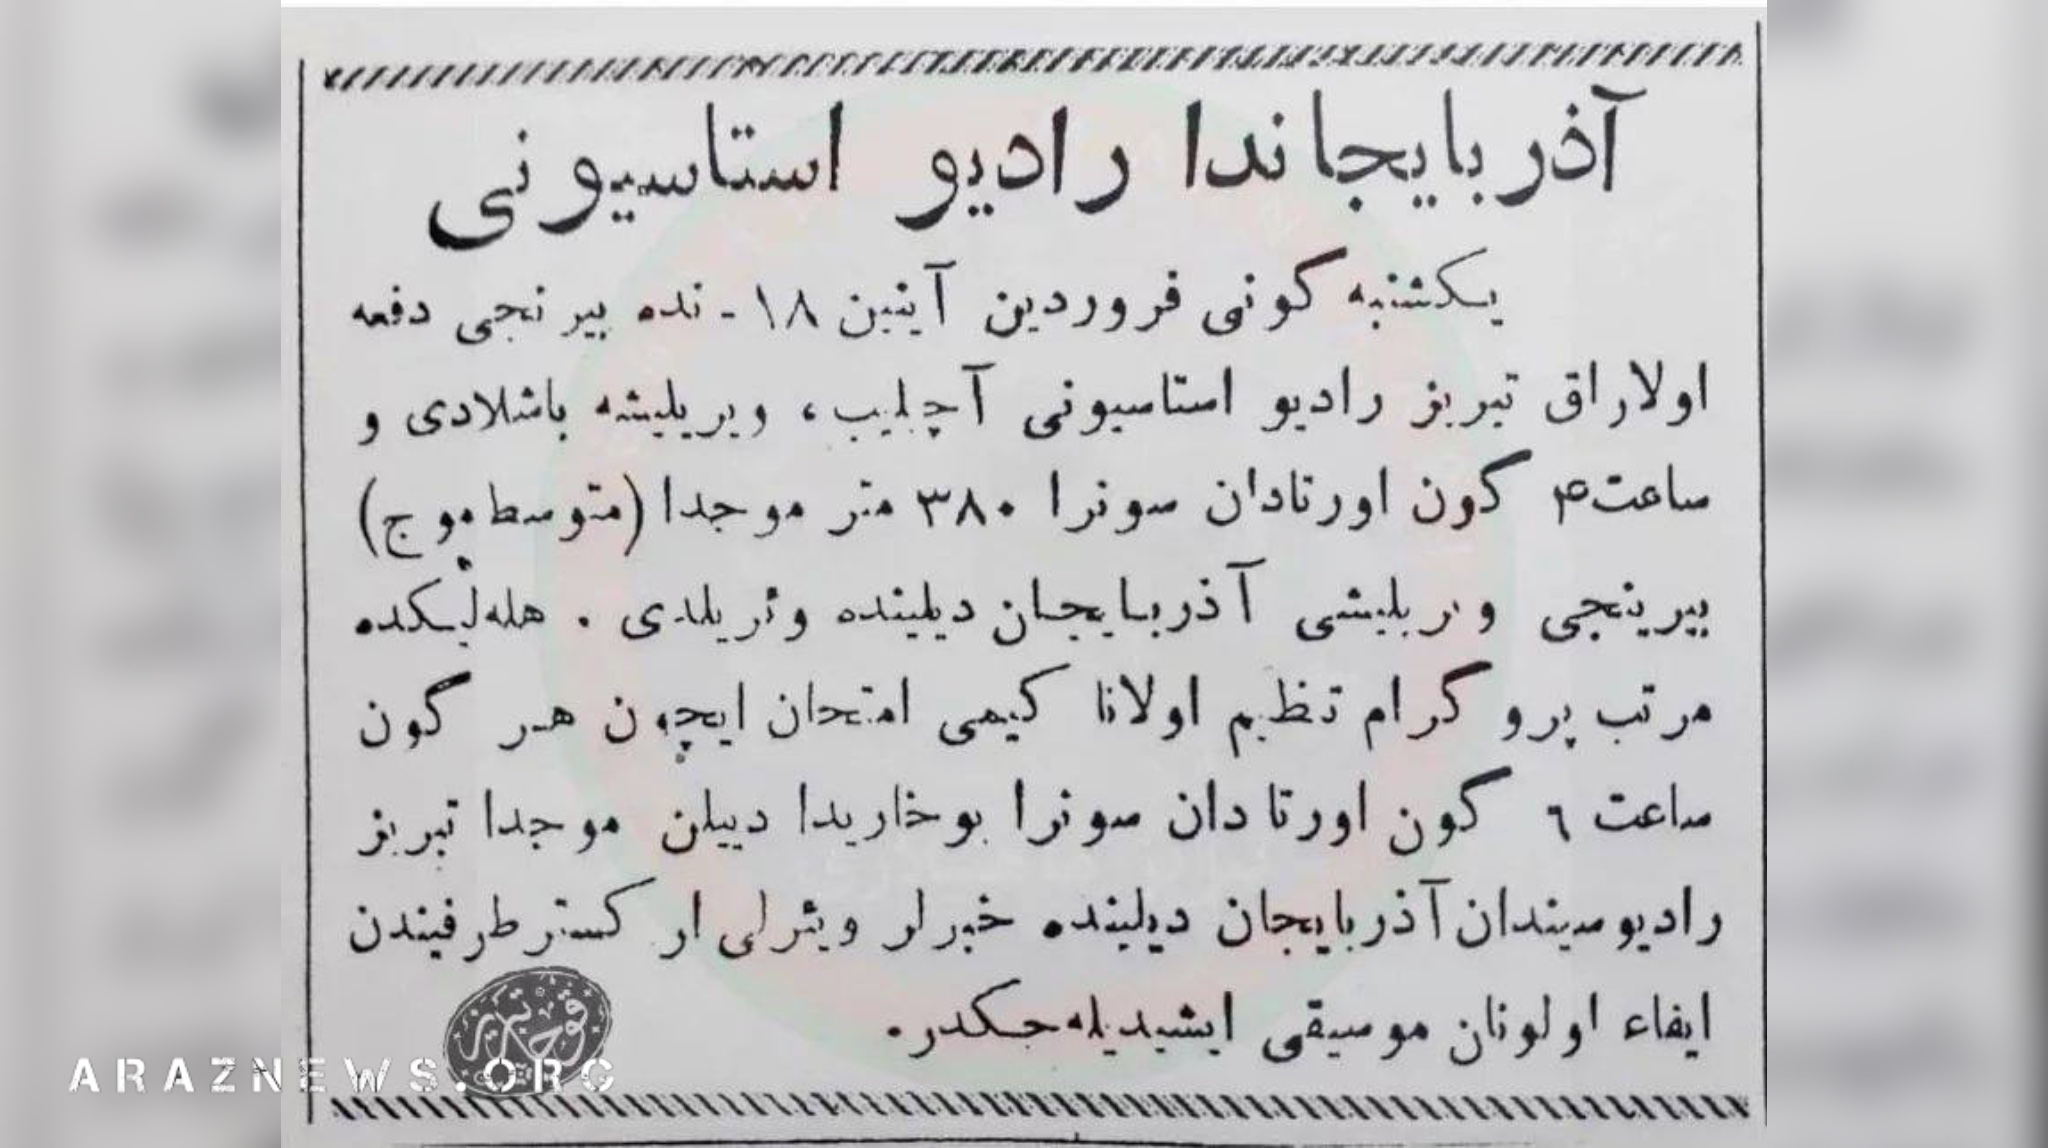 آذربایجاندا رادیو استاسیونی
یکشنبه گونی فروردین آینین ۱۸ - نده بیرنجی دفعه
اولاراق تبریز رادیو استاسیونی آچیلیب، ویریلیشه باشلادی و
ساعت ۴ گون اورتادان سونرا ۳۸۰ متر موجدا (متوسط موج)
بیرینجی وئریلیشی آذربایجان دیلینده وئریلدی. هله‌لیکده
مرتب پروگرام تنظیم اولانا کیمی امتحان ایچون هر گون
ساعت ٦ گون اورتادان سونرا یوخاریدا دییلن موجدا تبریز
رادیوسیندان آذربایجان دیلینده خبرلر ویئرلی ار کستر طرفیندن
ایفاء اولونان موسیقی ایشیدیله‌جکدر.
ARAZNEWS.ORG